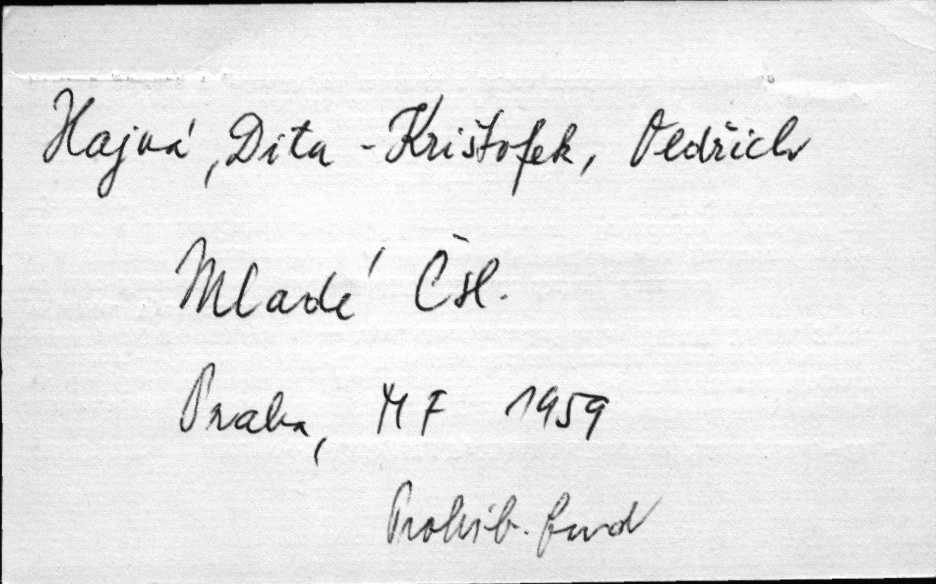 Hajná, Dita - Krištofek, Oldřich
Mladé Čsl.
Praha, MF 1959
Prohib. fond